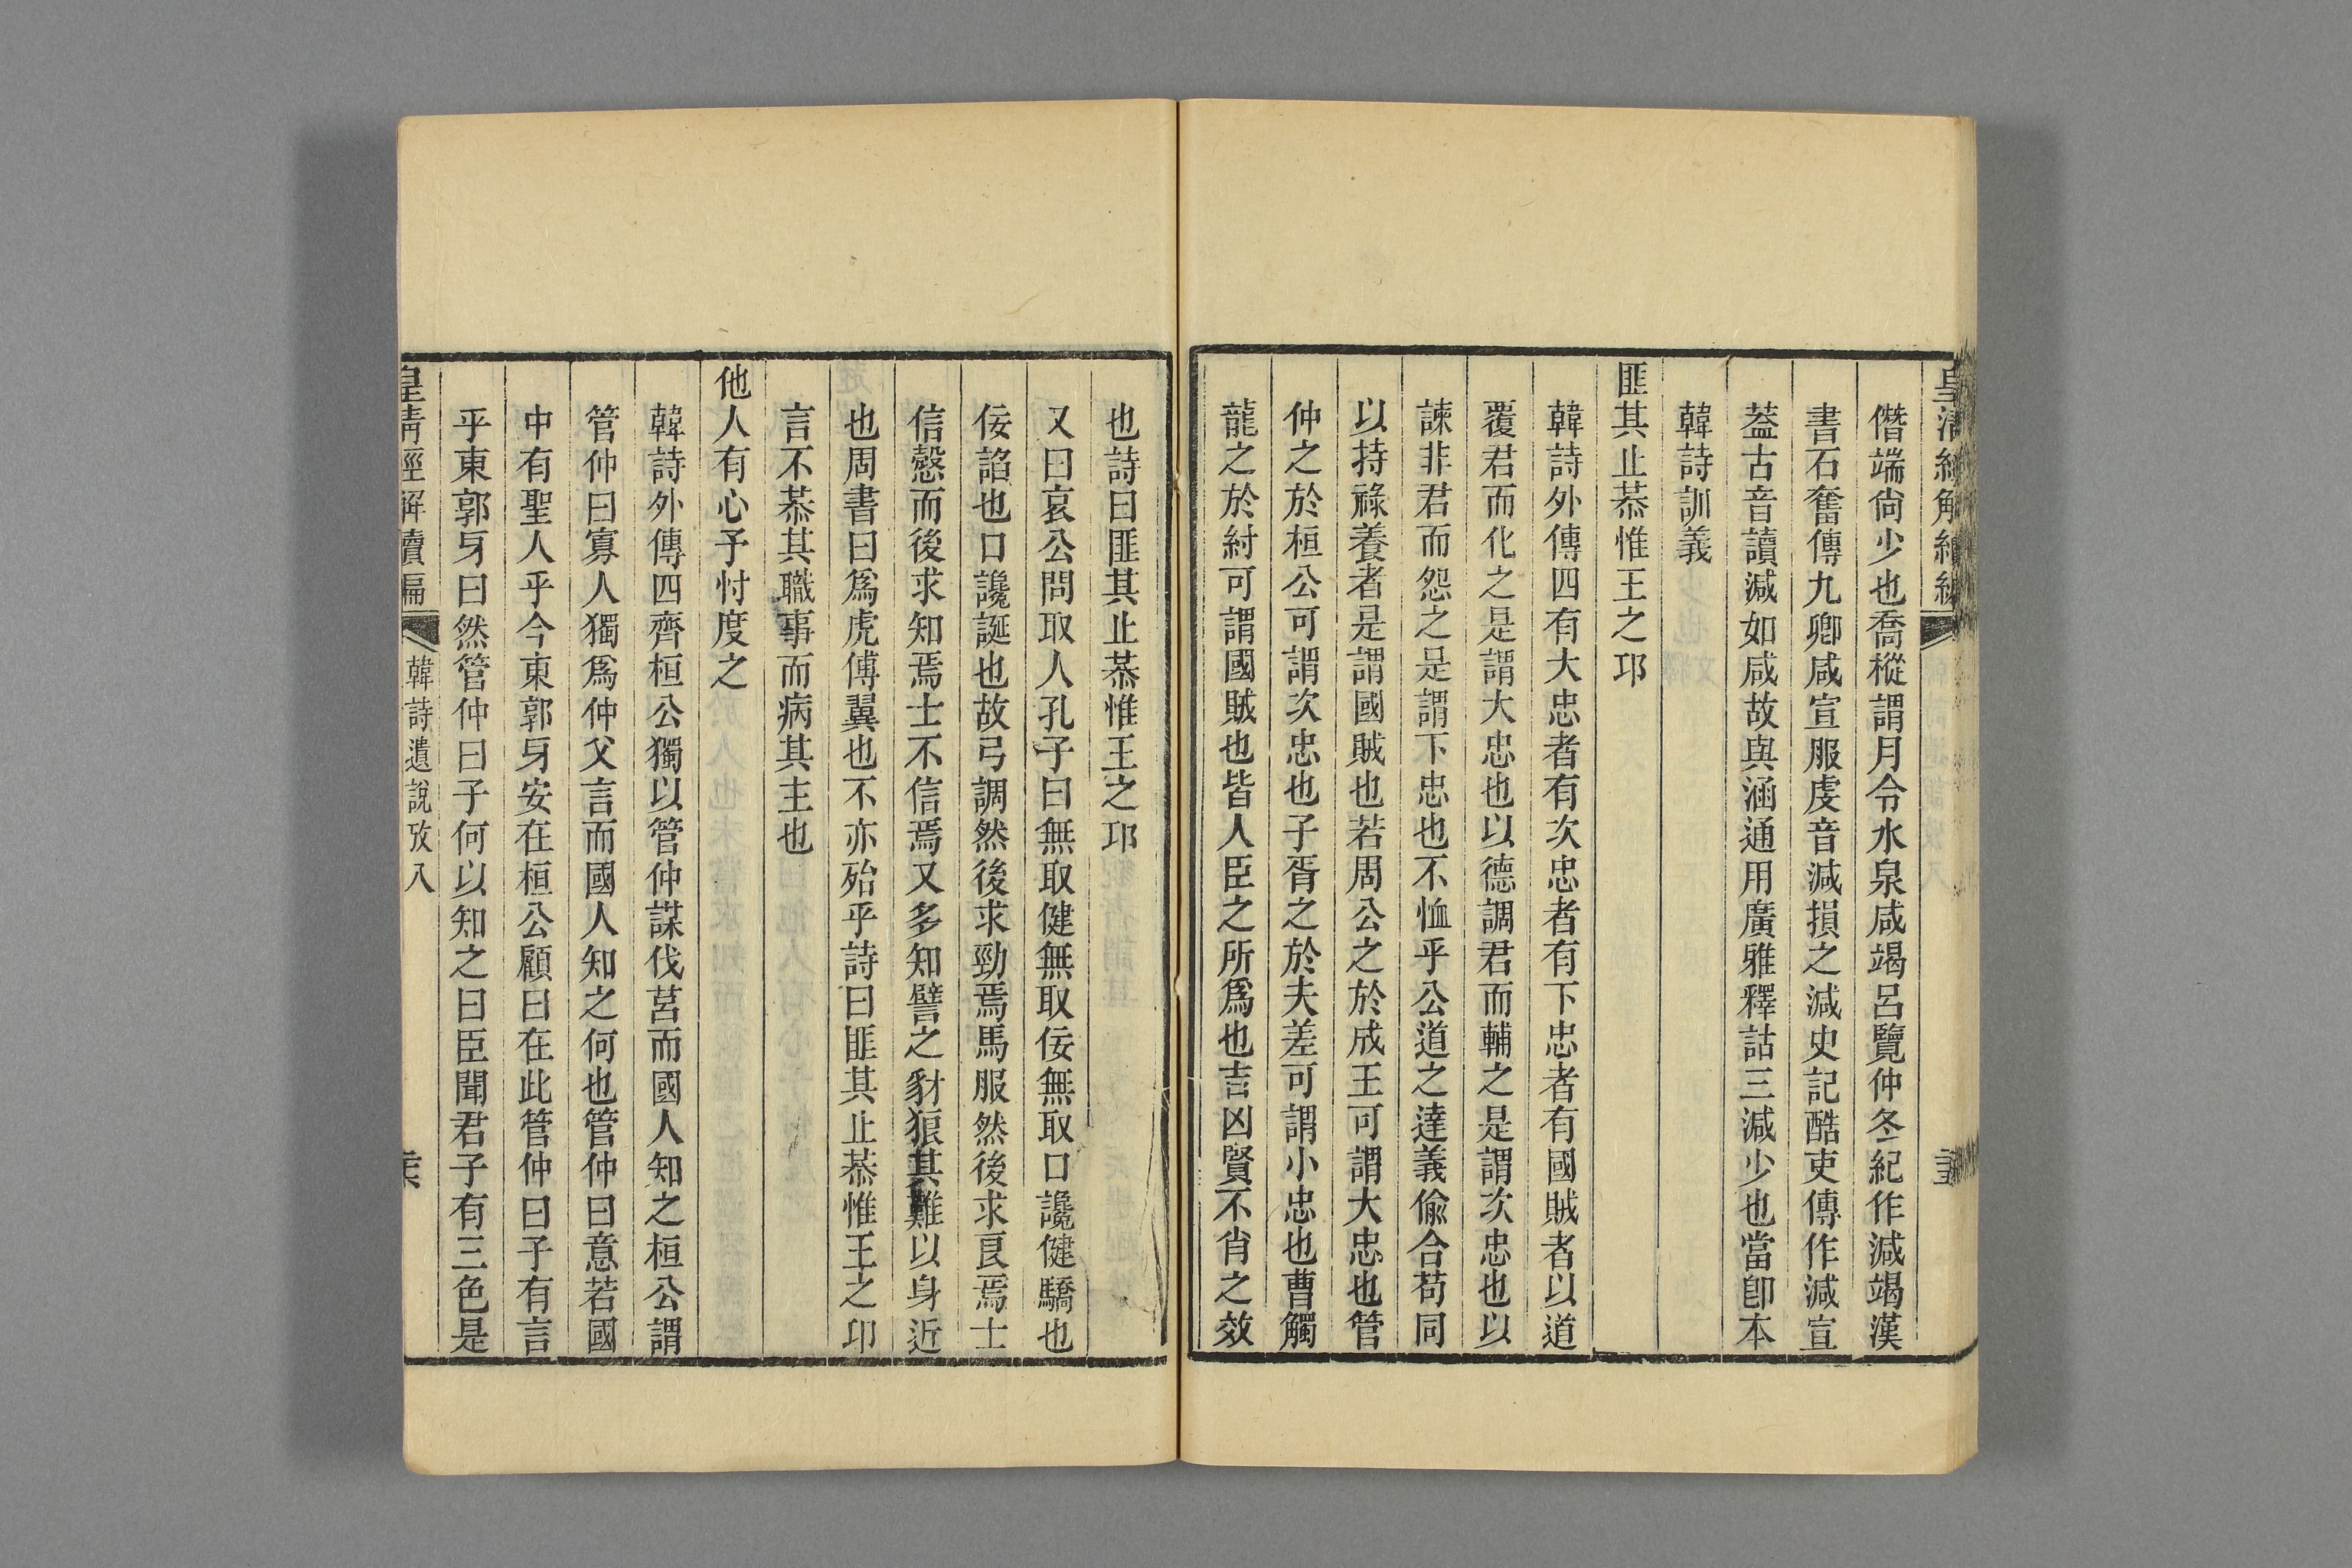 僭端尙少也喬樅謂月令水泉咸竭呂覽仲冬紀作減竭漢
書石奮傳九卿咸宣服虔音減損之減史記酷吏傳作減宣
葢古音讀減如咸故與涵通用廣雅釋詁三減少也當卽本
韓詩訓義
匪其止恭惟王之邛
韓詩外傳四有大忠者有次忠者有下忠者有國賊者以道
覆君而化之是謂大忠也以德調君而輔之是謂次忠也以
諫非君而怨之是謂下忠也不恤乎公道之達義偷合苟同
以持祿養者是謂國賊也若周公之於成王可謂大忠也管
仲之於桓公可謂次忠也子胥之於夫差可謂小忠也曹觸
龍之於紂可謂國賊也皆人臣之所爲也吉凶賢不肖之效
也詩曰匪其止恭惟王之邛
又曰哀公問取人孔子曰無取健無取佞無取口讒健驕也
佞諂也口讒誕也故弓調然後求勁焉馬服然後求良焉士
信慤而後求知焉士不信焉又多知譬之豺狼其難以身近
也周書曰爲虎傅翼也不亦殆乎詩曰匪其止恭惟王之邛
言不恭其職事而病其主也
他人有心予忖度之
韓詩外傳四齊桓公獨以管仲謀伐莒而國人知之桓公謂
管仲曰寡人獨爲仲父言而國人知之何也管仲曰意若國
中有聖人乎今東郭牙安在桓公顧曰在此管仲曰子有言
乎東郭牙曰然管仲曰子何以知之曰臣聞君子有三色是
皇清經解續編
韓詩遺說攷八